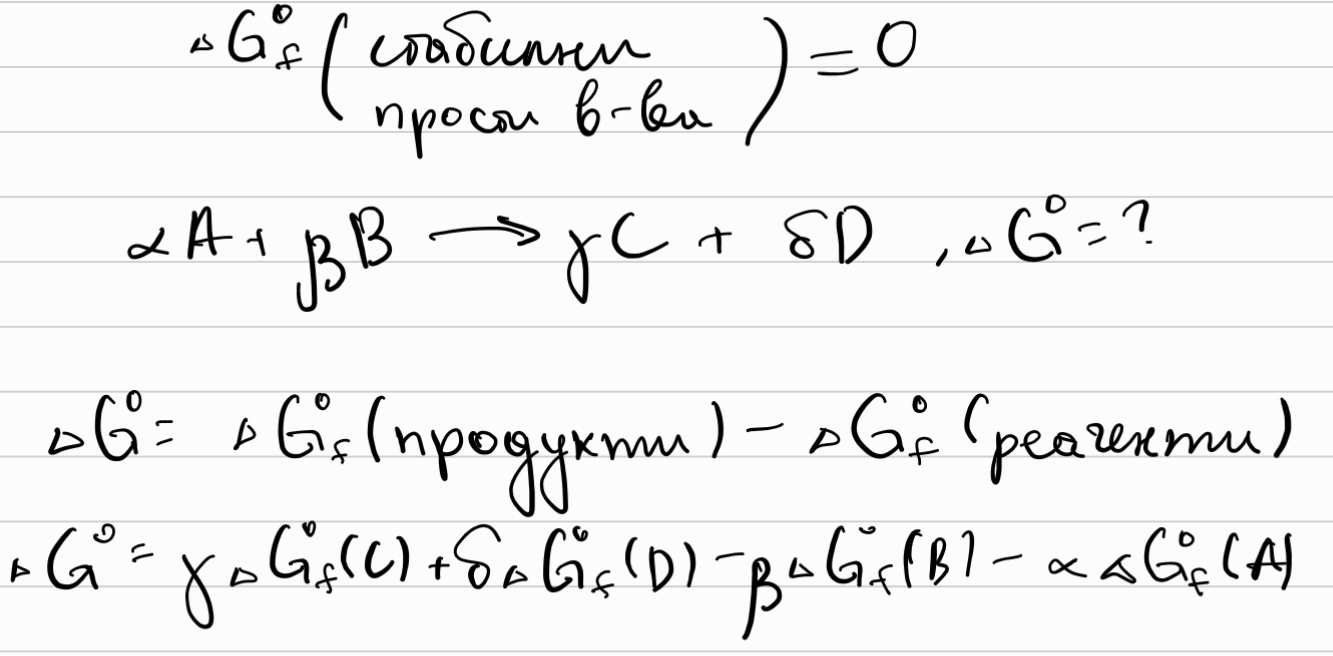 ΔG°f (стабилни
прости в-ва) = 0
αA + βB → γC + δD , ΔG° = ?
ΔG° = ΔG°f (продукти) - ΔG°f (реагенти)
ΔG° = γΔG°f(C) + δΔG°f(D) - βΔG°f(B) - αΔG°f(A)